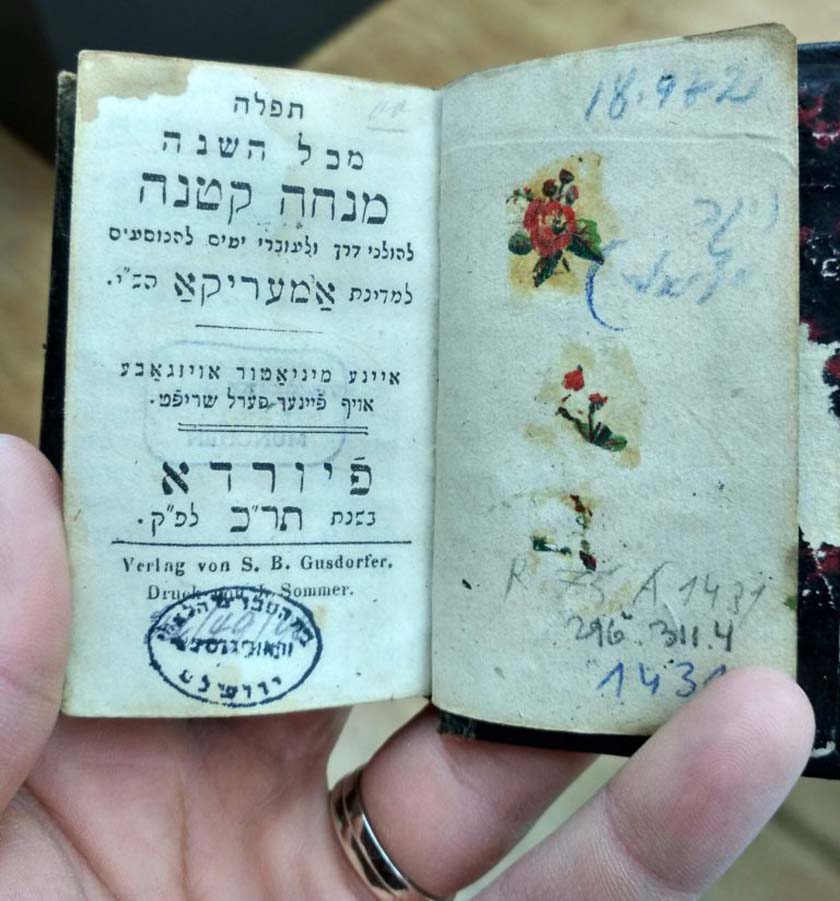 תפלה
מכל השנה
מנחה קטנה
להולכי דרך ולעוברי ימים להנוסעים
למדינת אַמעריקאַ הש״י.
איינע מיניאַטור אויזגאַבע
אויף פֿיינער פערל שריפֿט.
פֿיורדא
בשנת תר״כ לפ״ק.
Verlag von S. B. Gusdorfer.
Druck von J. Sommer.
בית הספרים הלאומי
והאוניברסיטאי
ירושלים
R 75 A 1431
296.311.4
1431